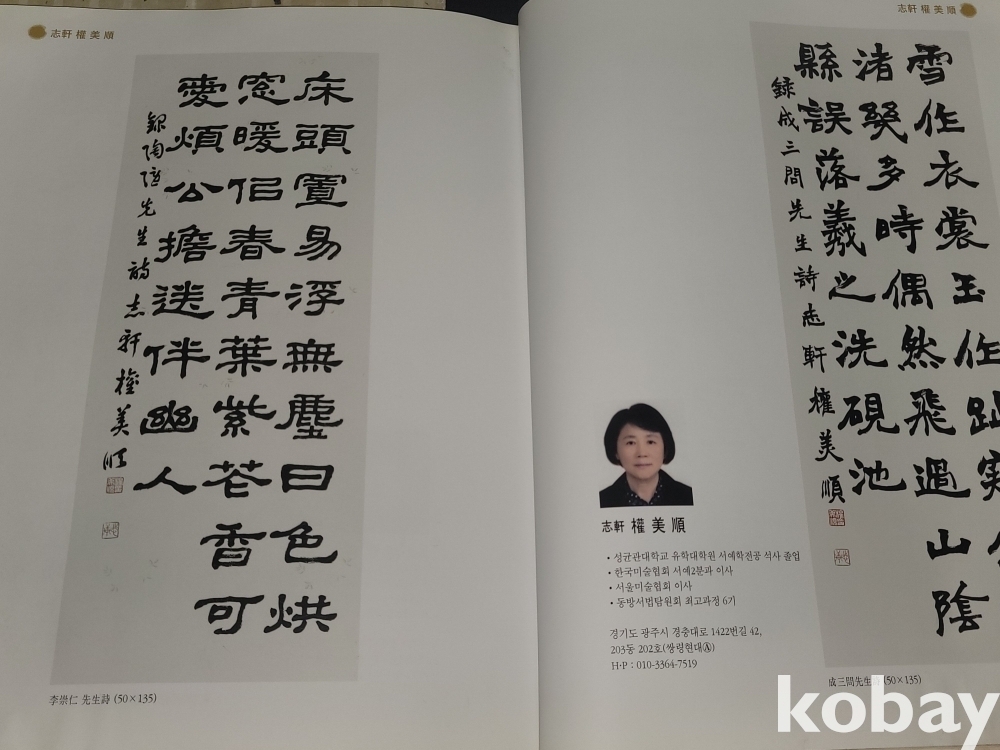 志軒 權 美 順
床頭置易浮無塵日色烘
窓暖佀春青葉紫花香可
愛煩公擔送伴幽人
錄陶隱先生詩志軒權美順
李崇仁 先生詩 (50×135)
志軒 權 美 順
雪作衣裳玉作趾
渚幾多時偶然飛過山陰
縣誤落羲之洗硯池
錄成三問先生詩志軒權美順
志軒 權 美 順
• 성균관대학교 유학대학원 서예학전공 석사 졸업
• 한국미술협회 서예2분과 이사
• 서울미술협회 이사
• 동방서법탐원회 최고과정 6기
경기도 광주시 경충대로 1422번길 42,
203동 202호(쌍령현대Ⓐ)
H·P : 010-3364-7519
成三問先生詩 (50×135)
kobay